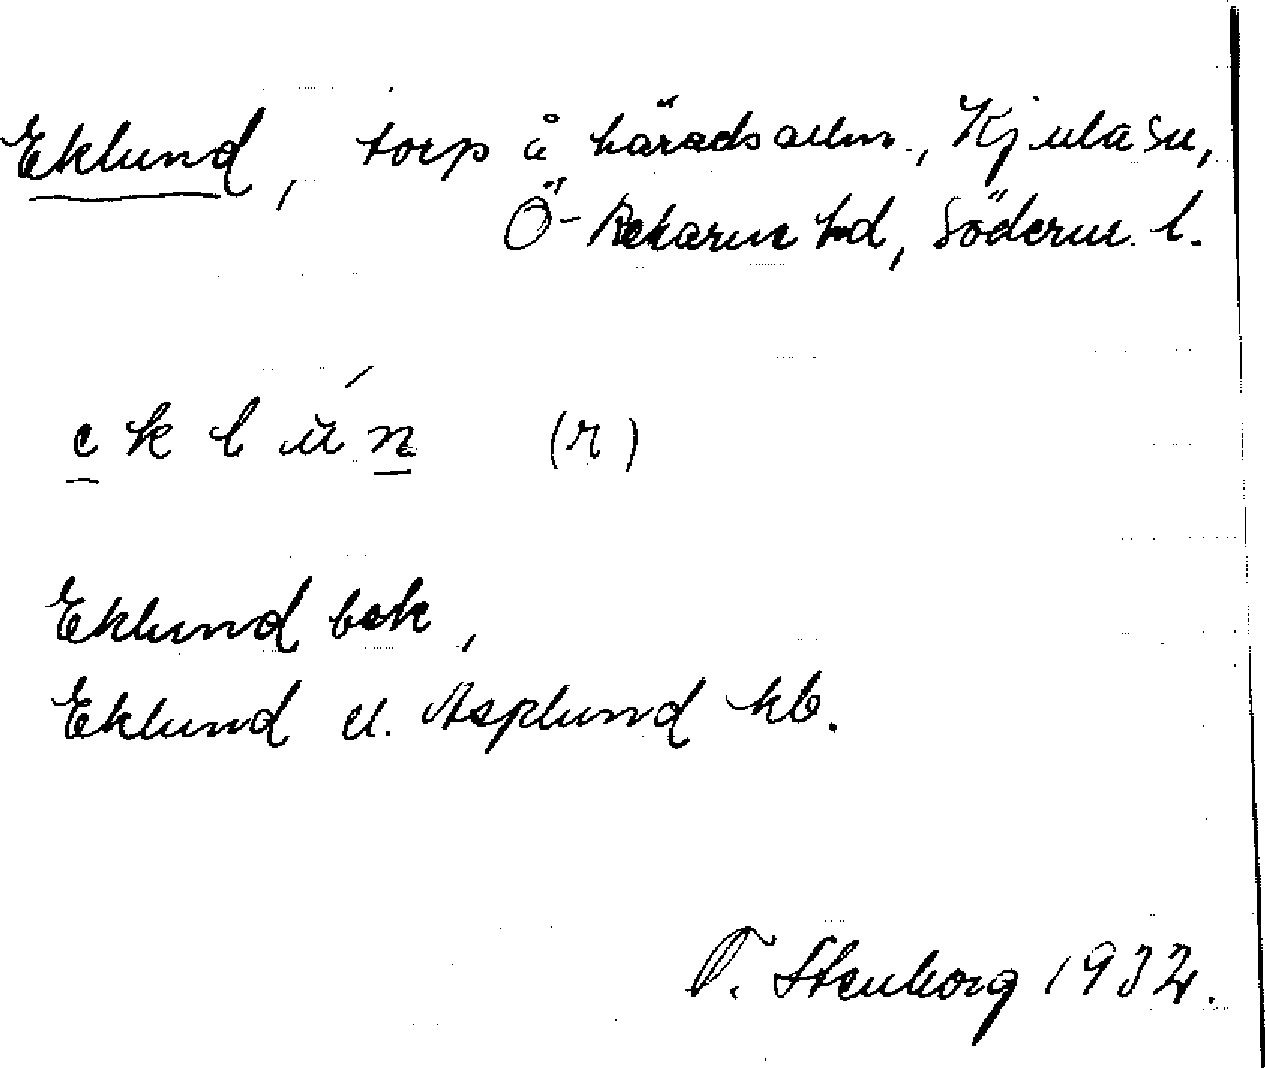 Eklund, torp å häradsallm., Kjula sn,
Ö-Rekarne hd, Söderm. l.
e k l u n (r)
Eklund bok,
Eklund el. Asplund kb.
T. Stenborg 1932.